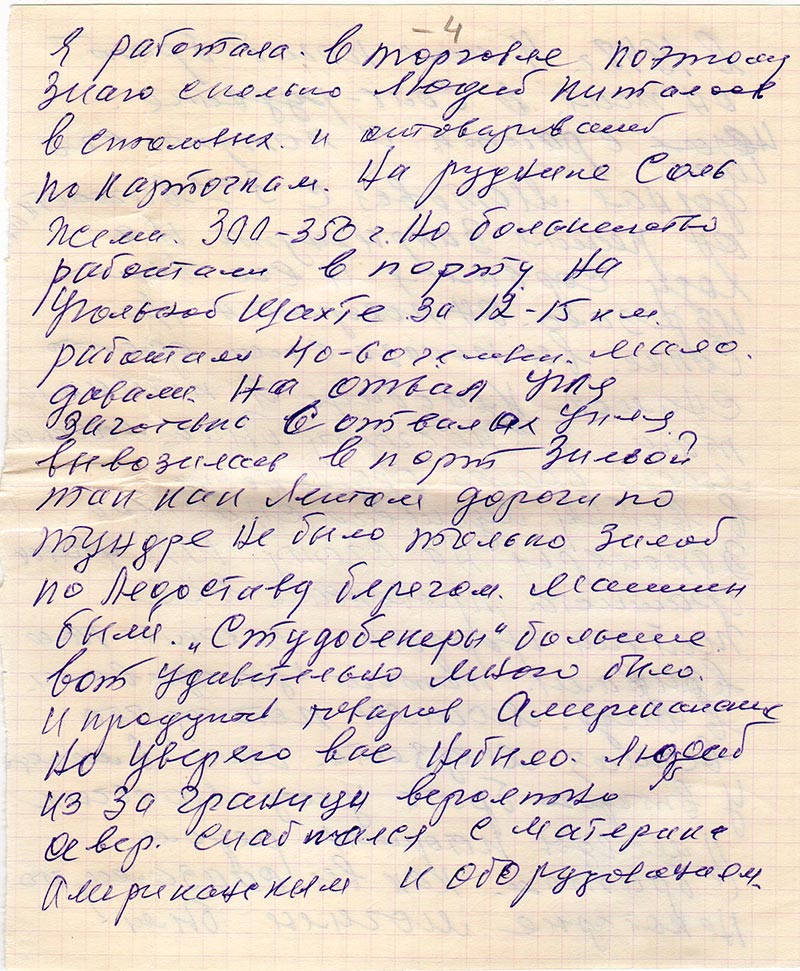 -4
Я работала. в торговле поэтому
знаю сколько людей питалось
в столовых. и отоваривалей
по карточкам. На руднике Соль
жели. 300-350 г. Но большенство
работали в порту на
Угольной Шахте за 12-15 км.
работали но-вочелов. мало.
давали. На отвал угля
в отвалах угля
вывозилась в порт Зимой
так как Летом дороги по
тундре не было только зимой
по Ледоставу берегом. Машин
были. „Студобекеры" большие
вот удивительно много было.
и продуктов товаров Американских
Но уверею вас небыло. Людей
из за границы вероятно
север. снабжался с материка
Американским и оборудованием.